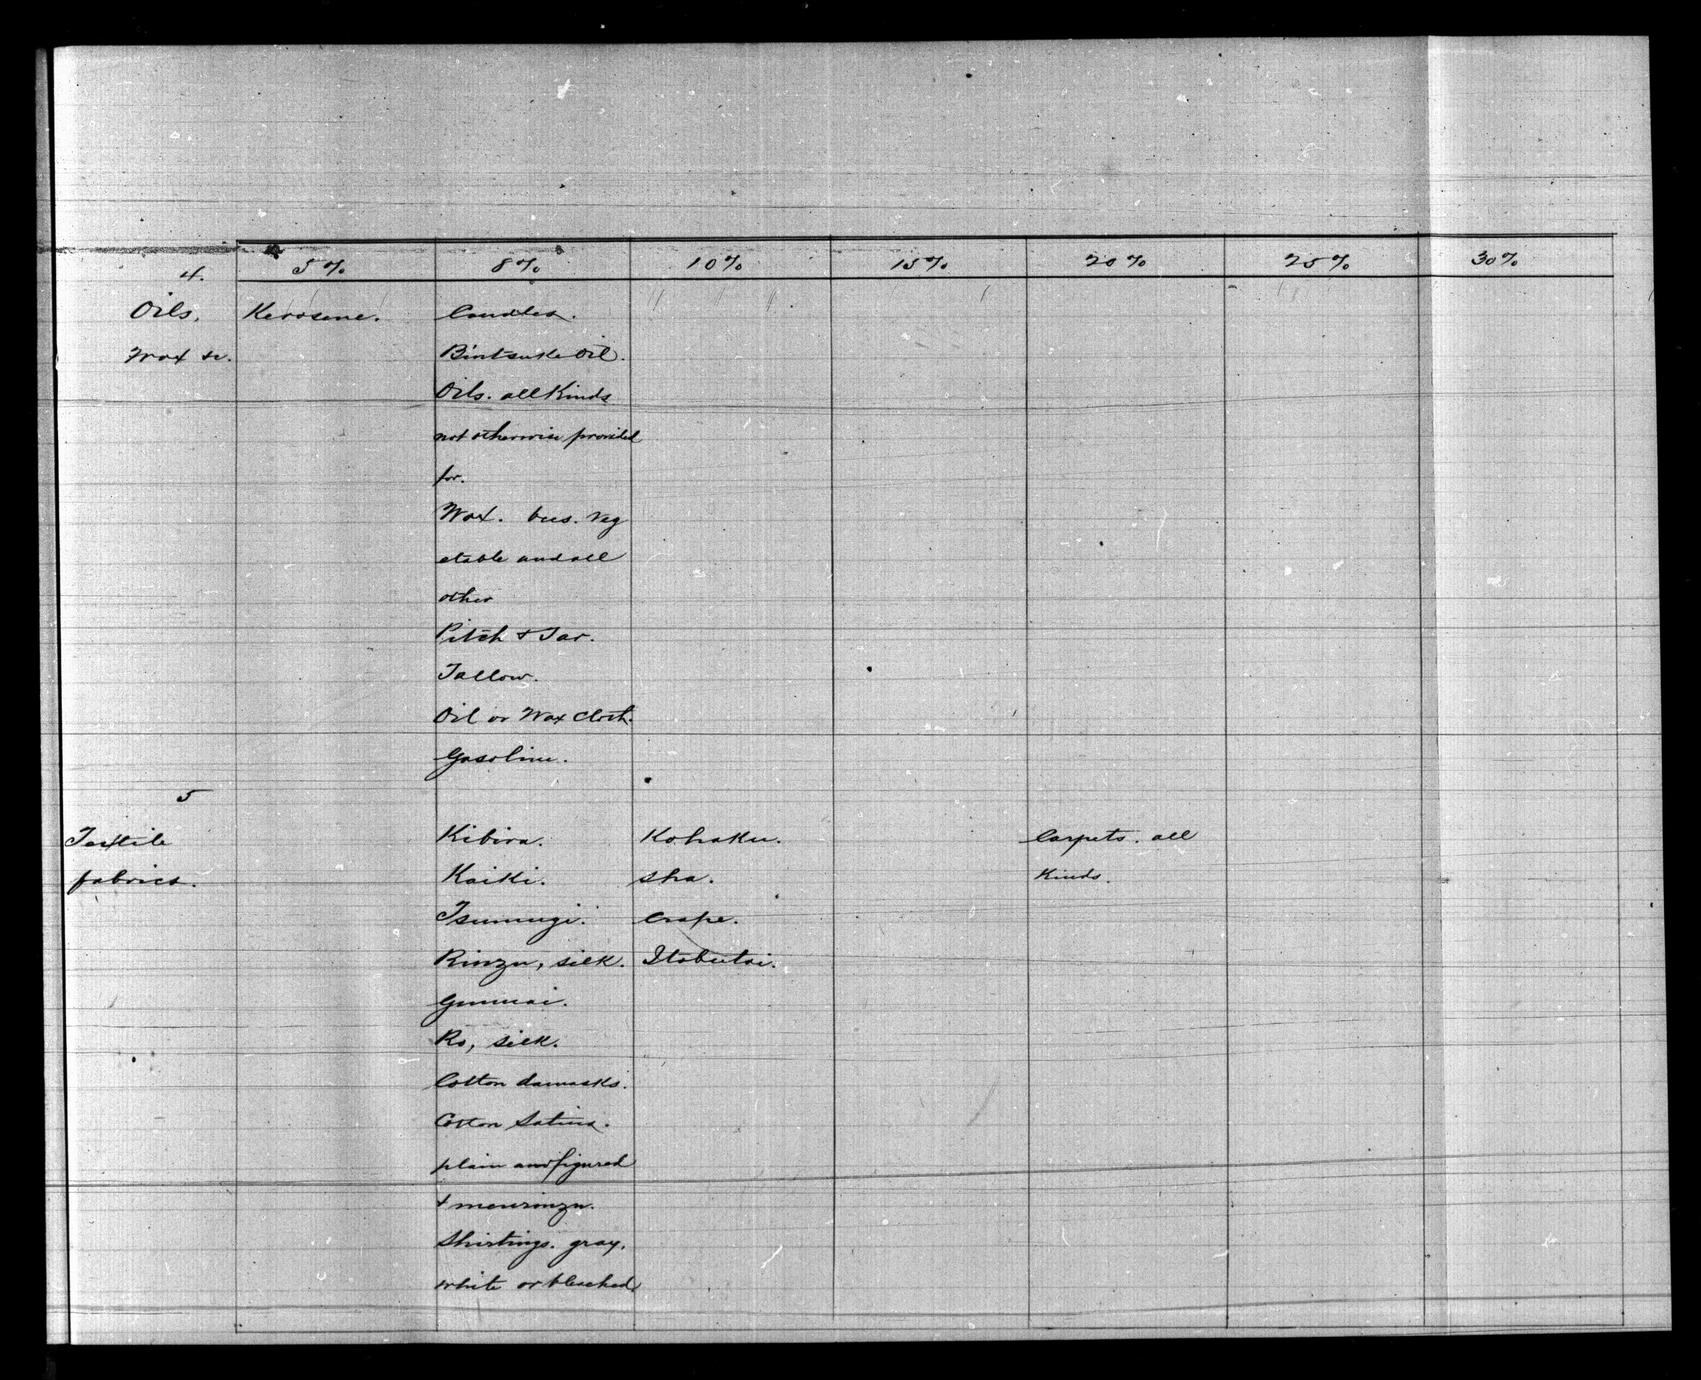 4. 5% 8% 10% 15% 20% 25% 30%
Oils, Kerosene. Candles.
Wax &c. Bintsuke Oil.
Oils. all Kinds
not otherwise provided
for.
Wax. bees. veg
etable and all
other
Pitch & Tar.
Tallow.
Oil or Wax cloth.
Gasoline.
5
Textile Kibira. Kohaku. Carpets. all
fabrics. Kaiki. Sha. Kinds.
Tsumugi. Crape.
Rinzu, silk. Itobutai.
Gunnai.
Ro, silk.
Cotton damasks.
Cotton Satins.
plain and figured
& menrinzu.
Shirtings. gray,
white or bleached